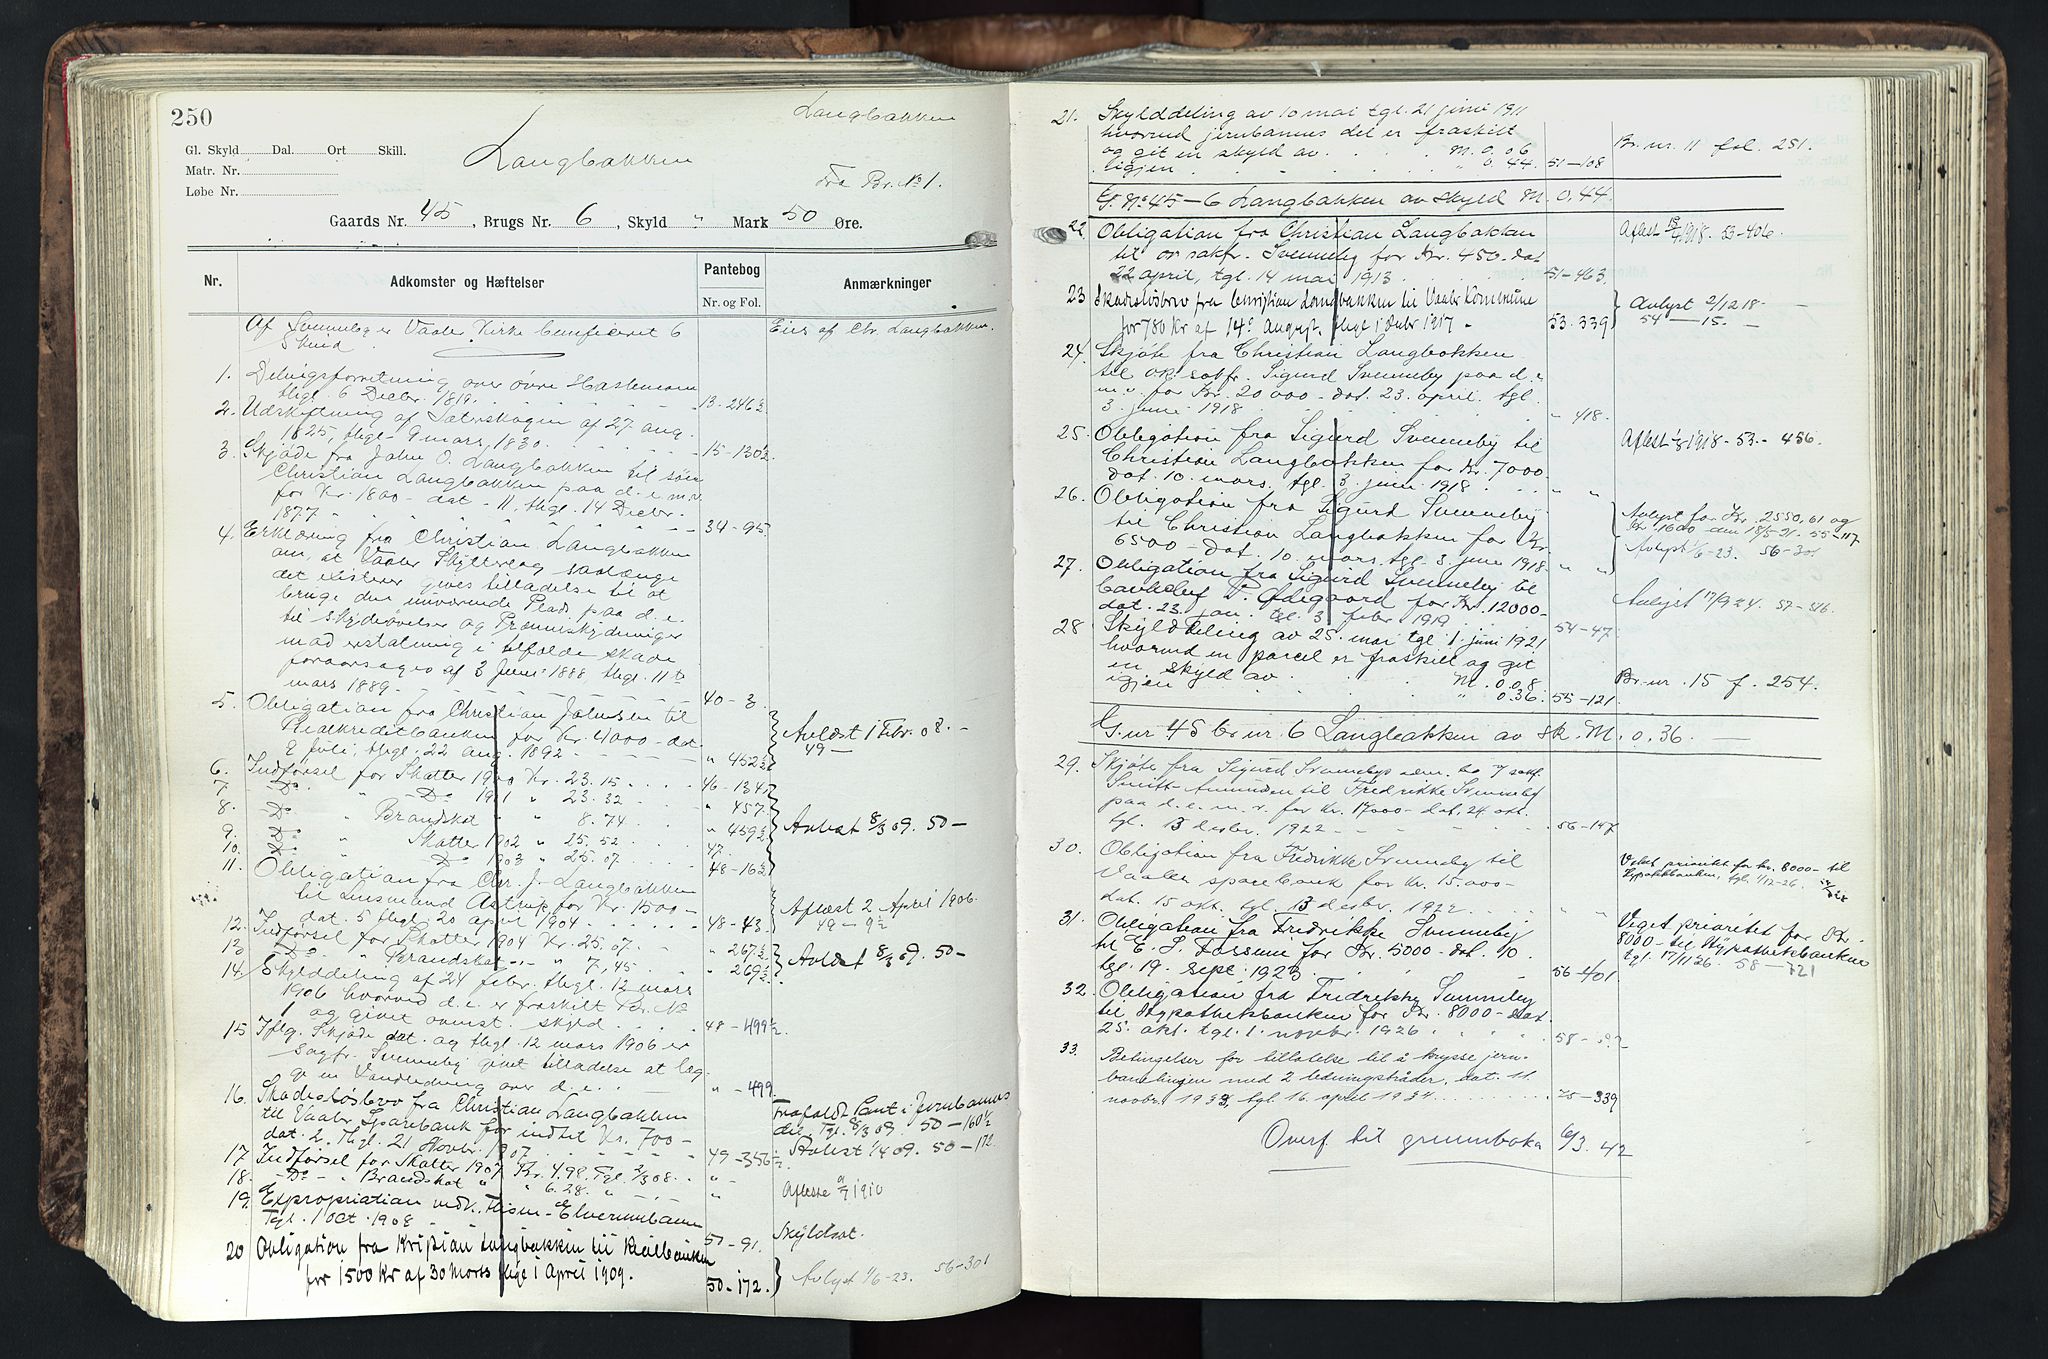 250
Langbakken
Gl. Skyld Dal. Ort Skill.
Langbakken
Matr. Nr.
Fra Br. No 1.
Løbe Nr.
Gaards Nr. 45, Brugs Nr. 6, Skyld " Mark 50 Øre.
Nr. Adkomster og Hæftelser Pantebog Anmærkninger
Nr. og Fol.
Af Svenneby er Vaaler Kirke beneficeret 6 Eies af Chr. Langbakken.
Skind
1. Delingsforretning over øvre Haslemoen
thgl. 6 Decbr. 1819. 13-246½
2. Udskiftning af Sæterskogen af 27 aug.
1825, thgl. 9 mars, 1830. 15-130½
3. Skjøde fra John O. Langbakken til søn
Christian Langbakken paa d. e. m. v.
for Kr. 1800- dat - 11, thgl. 14 Decbr.
1877 34-95
4. Erklæring fra Christian Langbakken
om, at Vaaler Skytterlag saalænge
det existerer gives tilladelse til at
bruge den nuværende Plads paa d. e.
til Skydeøvelser og Præmieskydninger
mod erstatning i tilfælde skade
foraarsages af 3 Juni 1888 thgl. 11te
mars 1889. 40-3
5. Obligation fra Christian Johnsen til
Realkreditbanken for Kr. 4000- dat. Avlæst 1 Febr. 08.
2 Juli, thgl. 22 aug. 1892 " 452½ 49-
6. Indførsel for Skatter 1900 Kr. 23.15 46-134½
7 -Do- " -Do- 1901 " 23.32 " 457.
8. -Do- " Brandskat " " 8.74 " 459½ Avlæst 8/3 09. 50-
9. -Do- " Skatter 1902 " 25.52 47.
10. -Do- " -Do- 1903 " 25.07 48-16½
11. Obligation fra Chr. J. Langbakken
til Lensmand Astrup for Kr. 1500- Aflæst 2 April 1906.
dat. 5 thgl. 20 april 1904 48-43. 49-9½
12. Indførsel for Skatter 1904 Kr. 25.07. " 267½
13 -Do- " Brandskat -"- " 7,45 " 269½ Avlæst 8/3 09. 50-
14. Skylddeling af 24 febr. thgl. 12 mars
1906 hvorved d. e. er fraskilt Br. No
og givet ovenst. skyld 48-499½
15 Iflg. Skjøde dat. og thgl. 12 mars 1906 er
sagfr. Svenneby givet tilladelse at læg-
ge en Vandledning over d. e. " -499.
16. Skadesløsbrev fra Christian Langbakken Frafaldt Pant i Jernbanens
til Vaaler Sparebank for indtil Kr. 700- del. Tgl. 8/3 09. 50-160½
dat. 2. thgl. 21 Novbr. 1907 49-356½ Avlæst 1/4 09. 50-172
17. Indførsel for Skatter 1907 Kr. 4.98. Tgl. 2/3 08. " -
18. -Do- " Brandskat " " 6.28. " " Aflæste 1910
19. Expropriation vedk. Flisen-Elverumbanen
Tgl. 1 Oct. 1908 50-91. Skyldsat.
20 Obligation fra Kristian Langbakken til Realbanken
for 1500 Kr af 30 Marts thgl 1 April 1909. 50-172. Avlyst 1/6-23. 56-301
21. Skylddeling av 10 mai tgl. 21 juni 1911
hvorved jernbanens del er fraskilt
og git en skyld av M. 0.06 Br. nr. 11 fol. 251.
igjen " 0.44. 51-108
G. No 45-6 Langbakken av Skyld M. 0,44.
22. Obligation fra Christian Langbakken Aflæst 1918. 53-406.
til o.r. sakfr. Svenneby for Kr. 450- dat.
22 april, tgl. 14 mai 1913 51-463.
23 Skadesløsbrev fra Christian Langbakken til Vaaler Kommune Avlyst 2/12 18-
for 780 Kr af 14de August, thgl 1 Oktbr 1917 53.339 54-15.
24. Skjøte fra Christian Langbakken
til o.r. sakfr. Sigurd Svenneby paa d. e.
m. v. for Kr. 20000- dat. 23. april tgl.
3 juni 1918 " 418.
25. Obligation fra Sigurd Svenneby til Aflæst 1918-53-456.
Christian Langbakken for Kr. 7000-
dat. 10. mars. tgl. 3 juni 1918. " "
26. Obligation fra Sigurd Svenneby Avlyst for Kr. 2550,61 og
til Christian Langbakken for Kr. Kr. 1600 den 18/5-21. 55-117
6500- dat. 10 mars. tgl. 3 juni 1918. " " Avlyst 1/6-23. 56-301
27. Obligation fra Sigurd Svenneby til
bankchef P. Ødegaard for Kr. 12000- Avlyst 17/9 24. 57-316.
dat. 23. jan. tgl. 3 febr 1919. 54-47.
28 Skylddeling av 25. mai tgl. 1. juni 1921
hvorved en parcel er fraskilt og git
en skyld av M. 0.08. Br.-nr. 15 f. 254.
igjen " 0.36. 55-121
G.nr 45 br nr. 6 Langbakken av sk. M. 0.36.
29. Skjøte fra Sigurd Svennebys adm. bo v/ sakf.
Smitt-Amundsen til Fredrikke Svenneby
paa d. e. m. v. for Kr. 17000- dat. 24. okt.
tgl. 13 desbr. 1922 56-147
30. Obligation fra Fredrikke Svenneby til Veket prioritet for kr. 8000- til
Vaaler sparebank for Kr. 15.000- Hypotekbanken, tgl. 1/12-26.
dat. 15 okt. tgl. 13 desbr. 1922 " "
31. Obligation fra Fredrikke Svenneby Veget prioritet for Kr.
til E. S. Fossum for Kr. 5000- dat. 10. 8000- til Hypothekbanken
tgl. 19. sept. 1923 56-401 tgl. 17/11 26. 58-121
32. Obligation fra Fredrikke Svenneby
til Hypothekbanken for Kr. 8000- dat.
25. okt. tgl. 1. novebr. 1926 58-
33. Betingelser for tillatelse til å krysse jern-
banelinjen med 2 ledningstråder, dat. 11.
novbr. 1933, tgl. 16 april 1934 75-339
Overf. til grunnboka 6/3.42